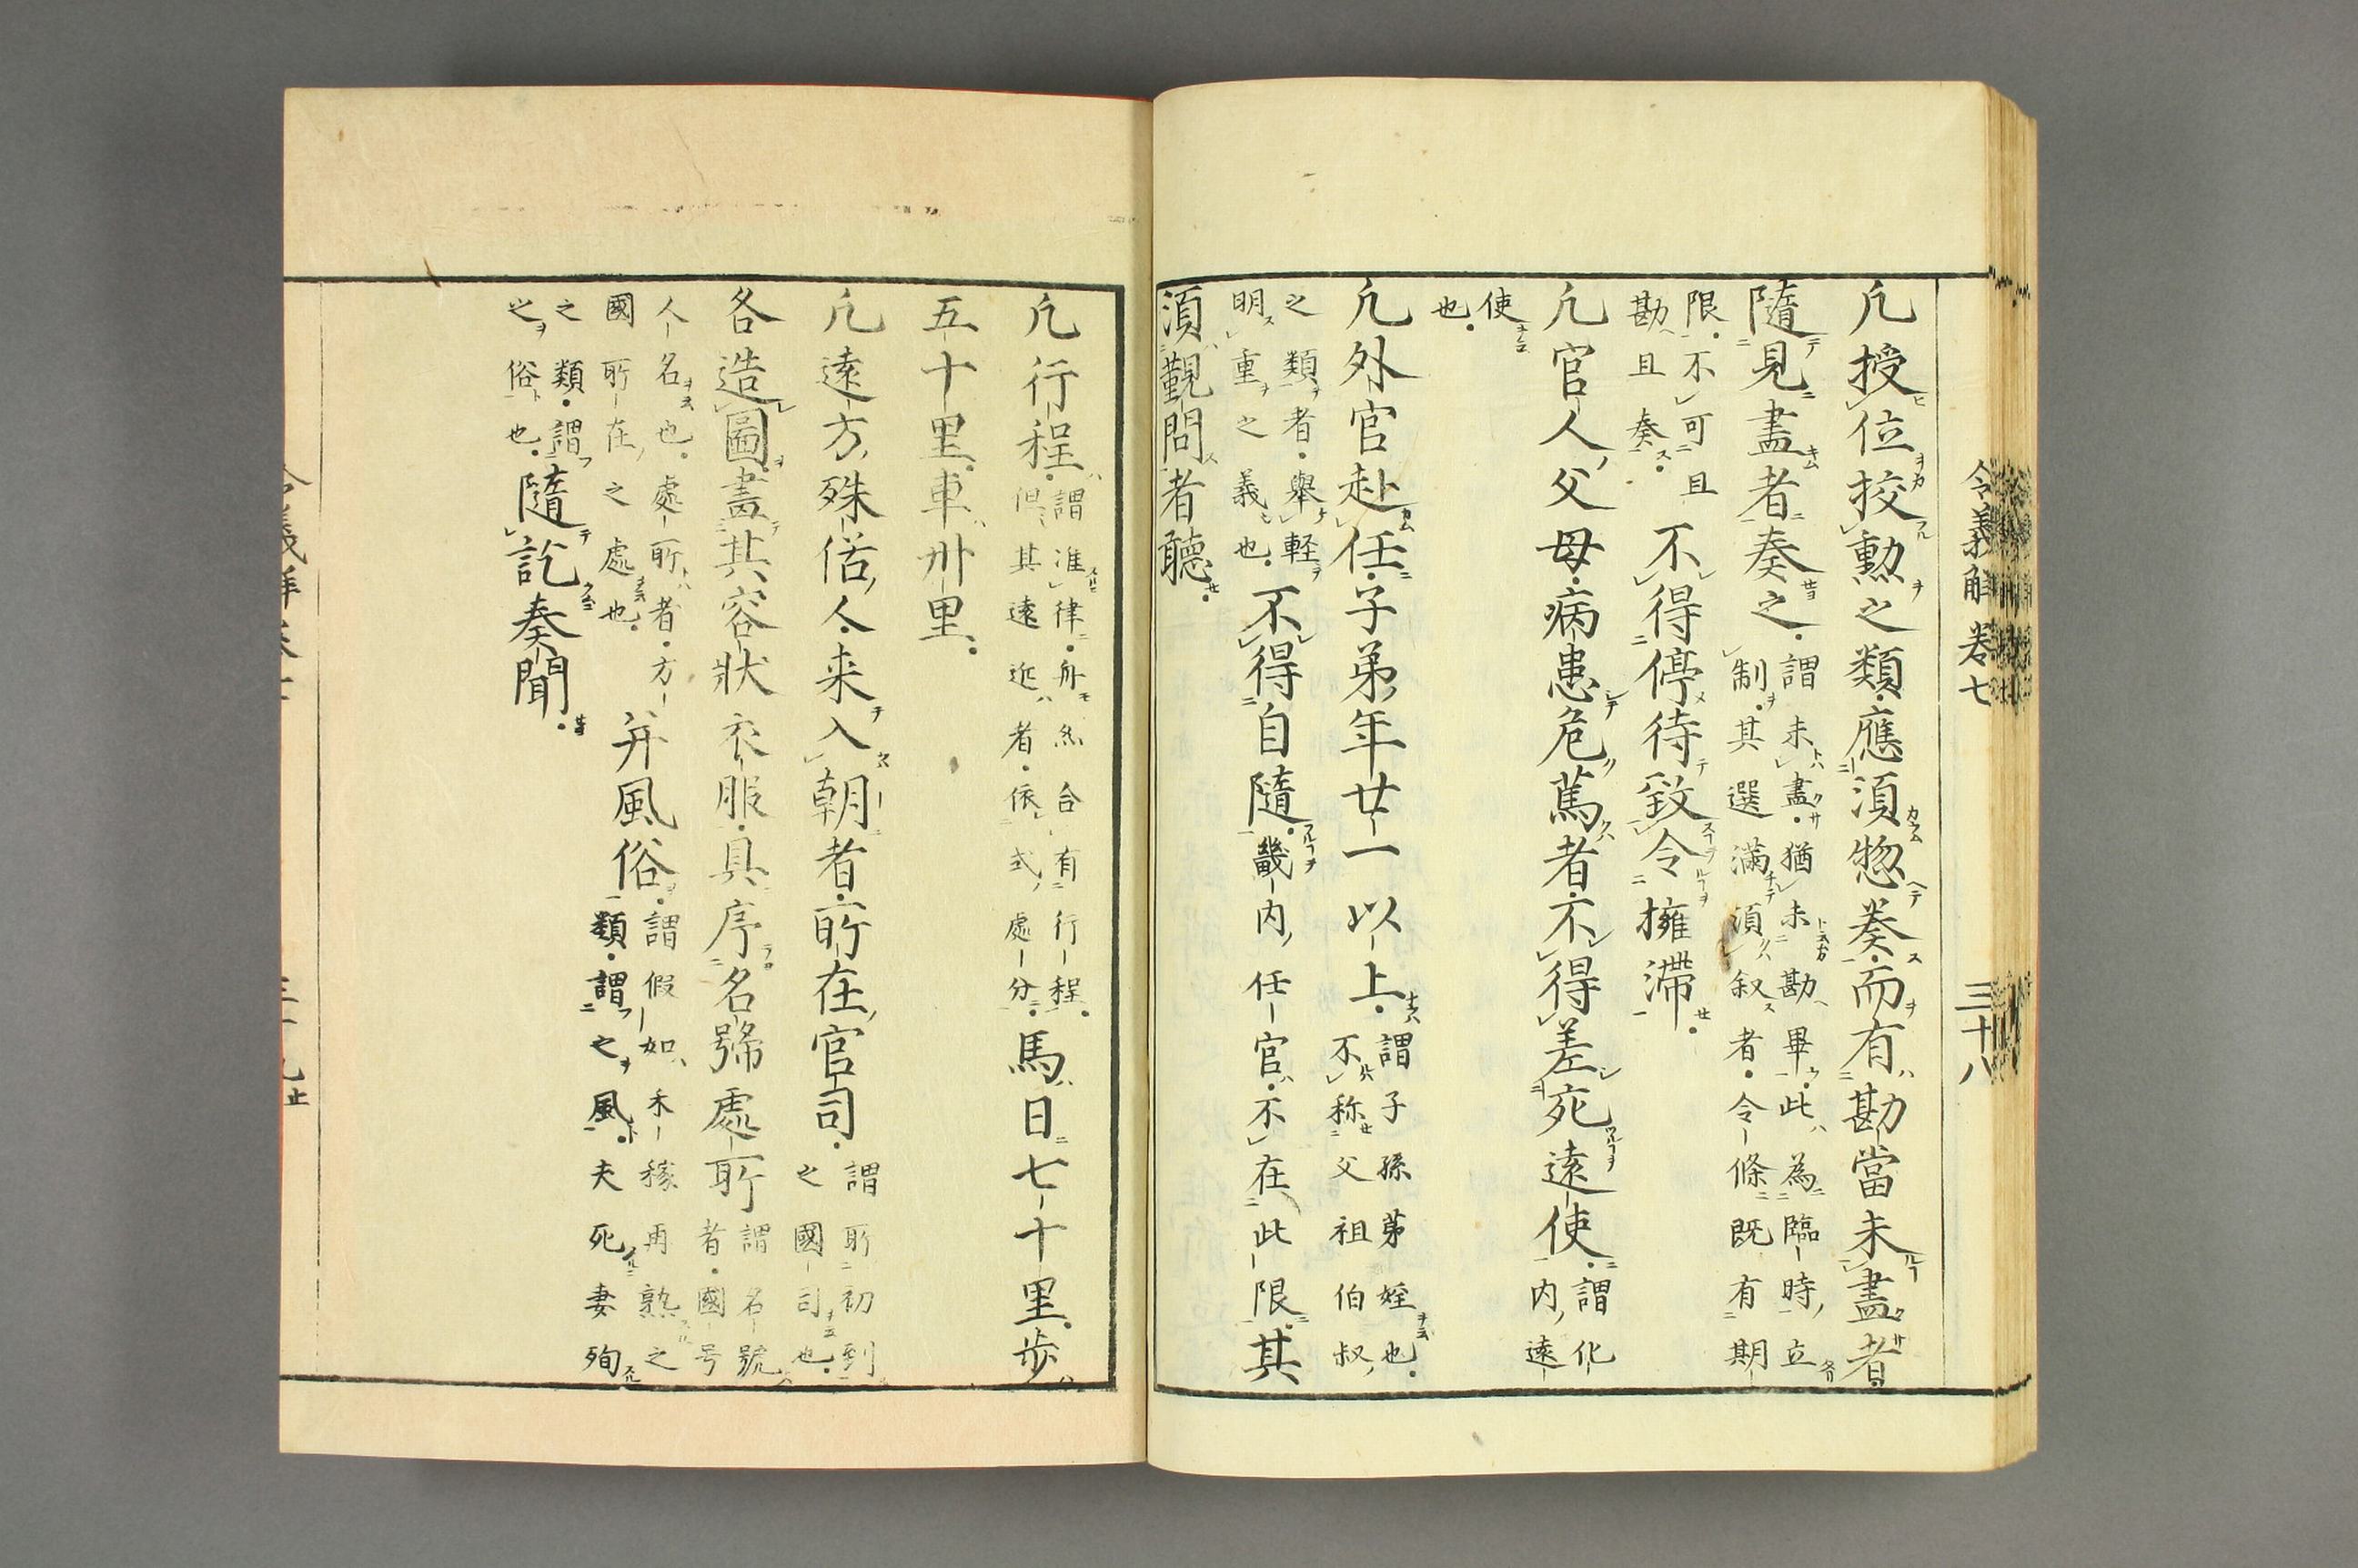 令義解卷七 三十八
凢授位挍勲之類應湏惣奏而有勘當未盡者
隨見盡者奏之謂未盡猶未勘畢此為臨時立
制其選滿湏叙者令條既有期
限不可且
勘且奏不得停待致令擁滯
凢官人父母病患危萬者不得差死遠使謂化
内遠
使
也
凢外官赴任子弟年廿一以上謂子孫弟姪也
不称父祖伯叔
之類者舉軽
明重之義也不得自隨畿内任官不在此限其
湏覲問者聽
凢行程謂准律舟䋲合有行程
但其遠近者依式處分馬日七十里歩
五十里車卅里
凢遠方殊俗人来入朝者所在官司謂所初到
之國司也
各造圖畫其容狀衣服具序名號處所謂名號
者國号
人名也處所者方
國所在之處也并風俗謂假如禾稼再熟之
類謂之風夫死妻殉
之類謂
之俗也隨訖奏聞